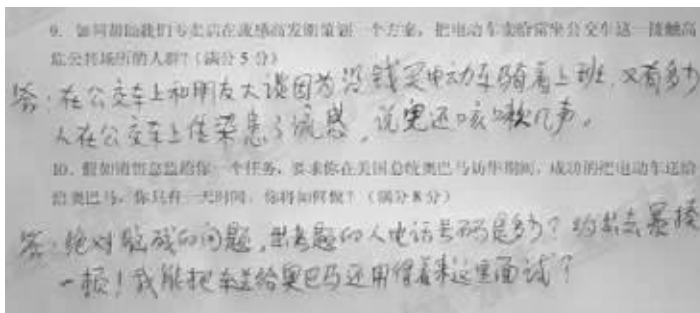 9. 如何帮助我们专卖店在流感高发期策划一个方案，把电动车卖给常坐公交车这一接触高
危公共场所的人群？（满分5分）
答：在公交车上和朋友大谈因为没钱买电动车骑着上班，又有多少
人在公交车上传染患了流感，说完还咳嗽几声。
10. 假如销售总监给你一个任务，要求你在美国总统奥巴马访华期间，成功的把电动车送给
给奥巴马，你只有一天时间，你将如何做？（满分8分）
答：绝对脑残的问题，出考题的人电话号码是多少？约出去暴揍
一顿！我能把车送给奥巴马还用得着来这里面试？